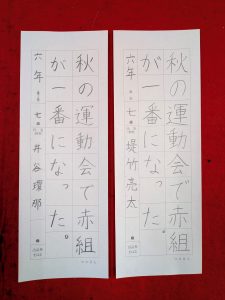 秋の運動会で赤組
が一番になった。
六年 七 堤竹亮太
秋の運動会で赤組
が一番になった。
六年 七 井谷環那